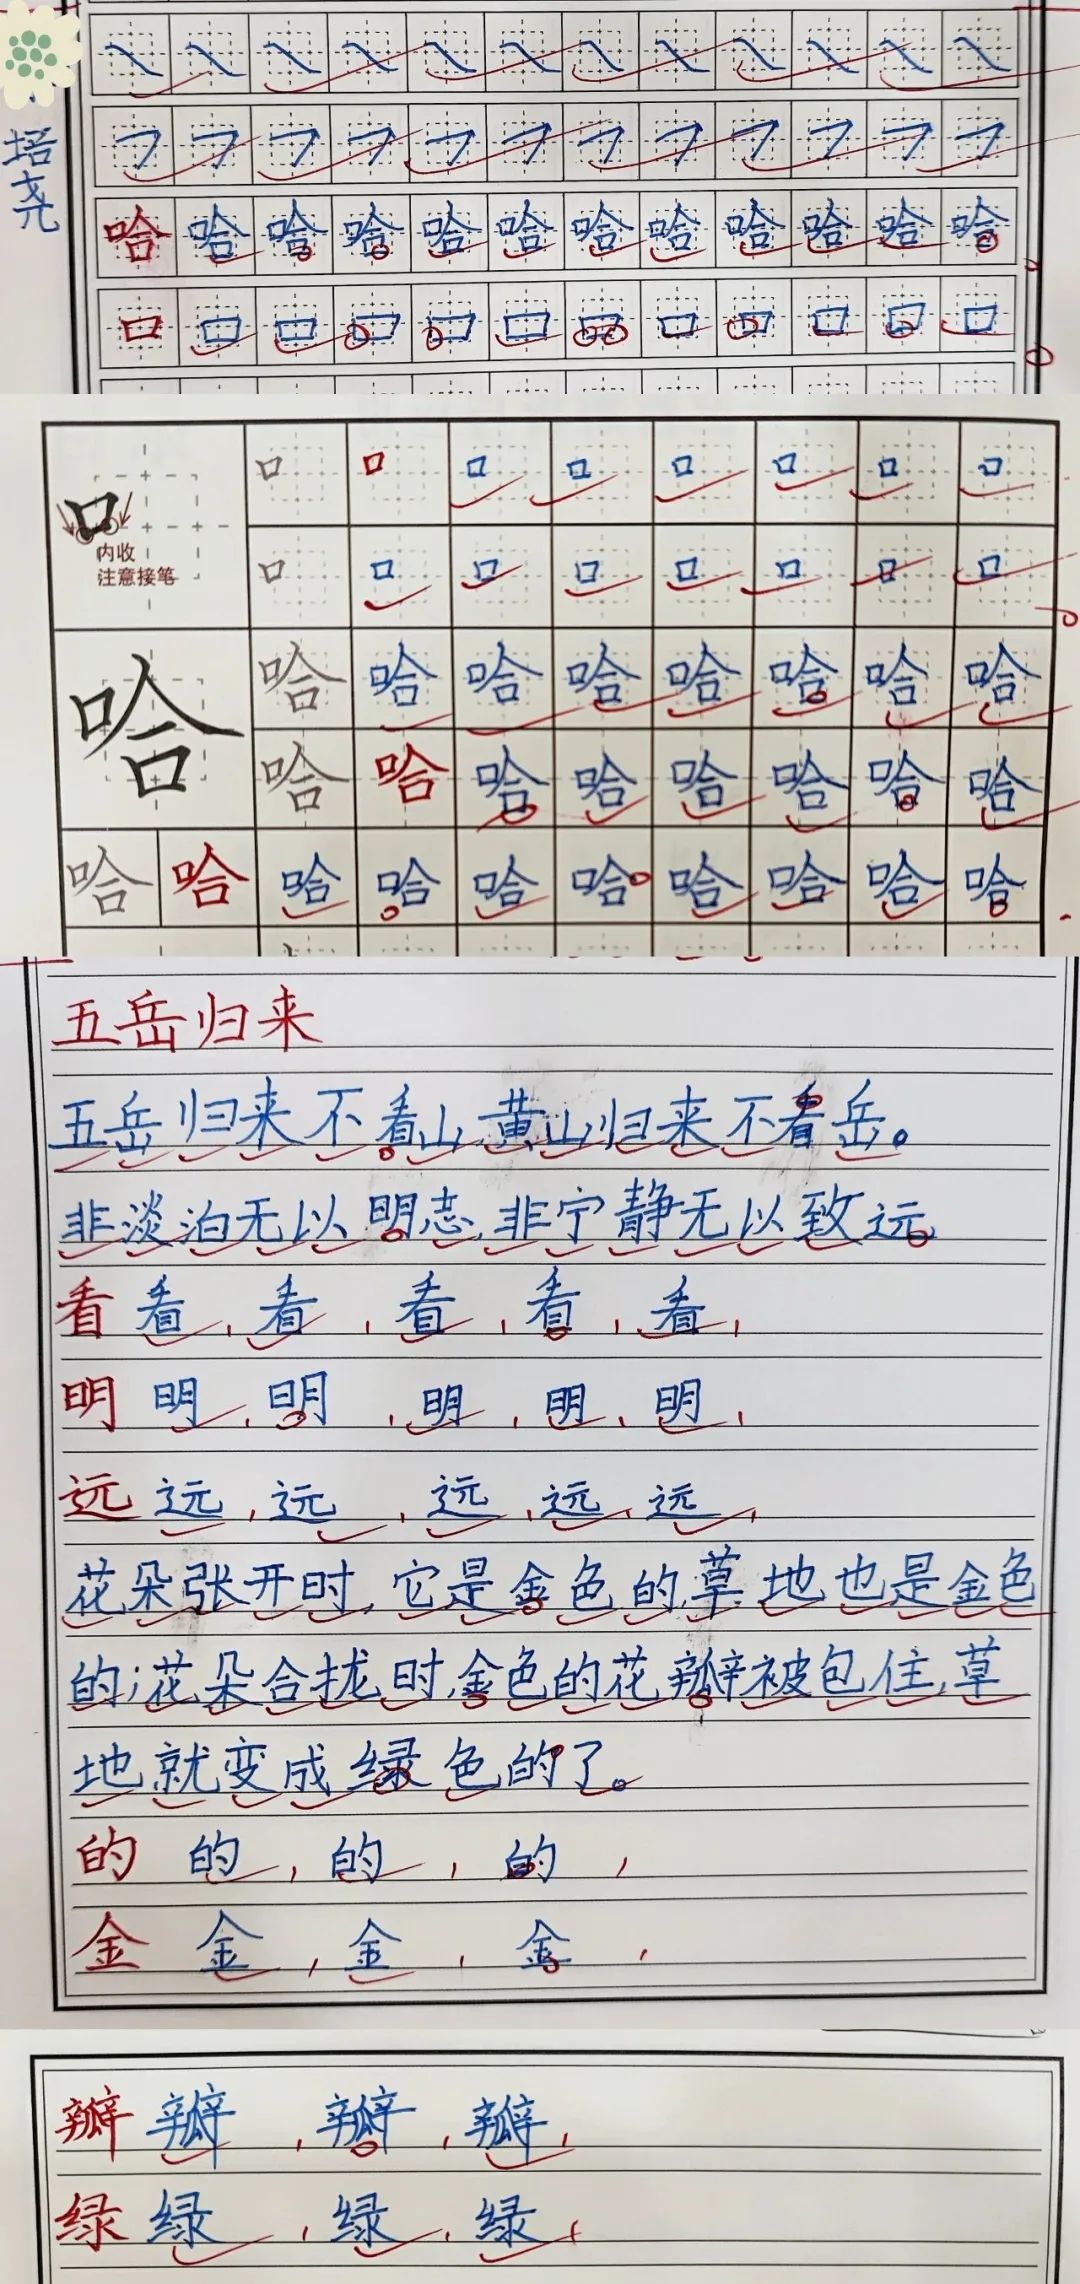 培尧
哈哈哈哈哈哈哈哈哈哈哈哈
口口口口口口口口口口口口
口口口口口口口口口
内收
注意接笔
口口口口口口口口
哈哈哈哈哈哈哈哈哈
哈哈哈哈哈哈哈哈
哈哈哈哈哈哈哈哈哈哈
五岳归来
五岳归来不看山,黄山归来不看岳。
非淡泊无以明志,非宁静无以致远
看看看看看看
明明明明明明
远远远远远远
花朵张开时,它是金色的,草地也是金色
的;花朵合拢时,金色的花瓣被包住,草
地就变成绿色的了。
的的的的
金金金金
瓣瓣瓣瓣
绿绿绿绿